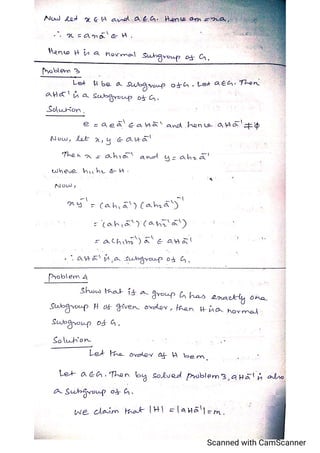 Now let x ∈ H and a ∈ G. Hence ax = xa.
∴ x = axa⁻¹ ∈ H.
Hence H is a normal subgroup of G.
Problem 3
Let H be a subgroup of G. Let a ∈ G. Then
aHa⁻¹ is a subgroup of G.
Solution.
e = aea⁻¹ ∈ aHa⁻¹ and hence aHa⁻¹ ≠ ϕ
Now, let x, y ∈ aHa⁻¹
Then x = ah₁a⁻¹ and y = ah₂a⁻¹
where h₁, h₂ ∈ H.
Now,
xy⁻¹ = (ah₁a⁻¹)(ah₂a⁻¹)⁻¹
= (ah₁a⁻¹)(ah₂⁻¹a⁻¹)
= a(h₁h₂⁻¹)a⁻¹ ∈ aHa⁻¹
∴ aHa⁻¹ is a subgroup of G.
Problem 4
Show that if a group G has exactly one
Subgroup H of given order, then H is a normal
Subgroup of G.
Solution.
Let the order of H be m.
Let a ∈ G. Then by solved problem 3, aHa⁻¹ is also
a subgroup of G.
We claim that |H| = |aHa⁻¹| = m.
Scanned with CamScanner